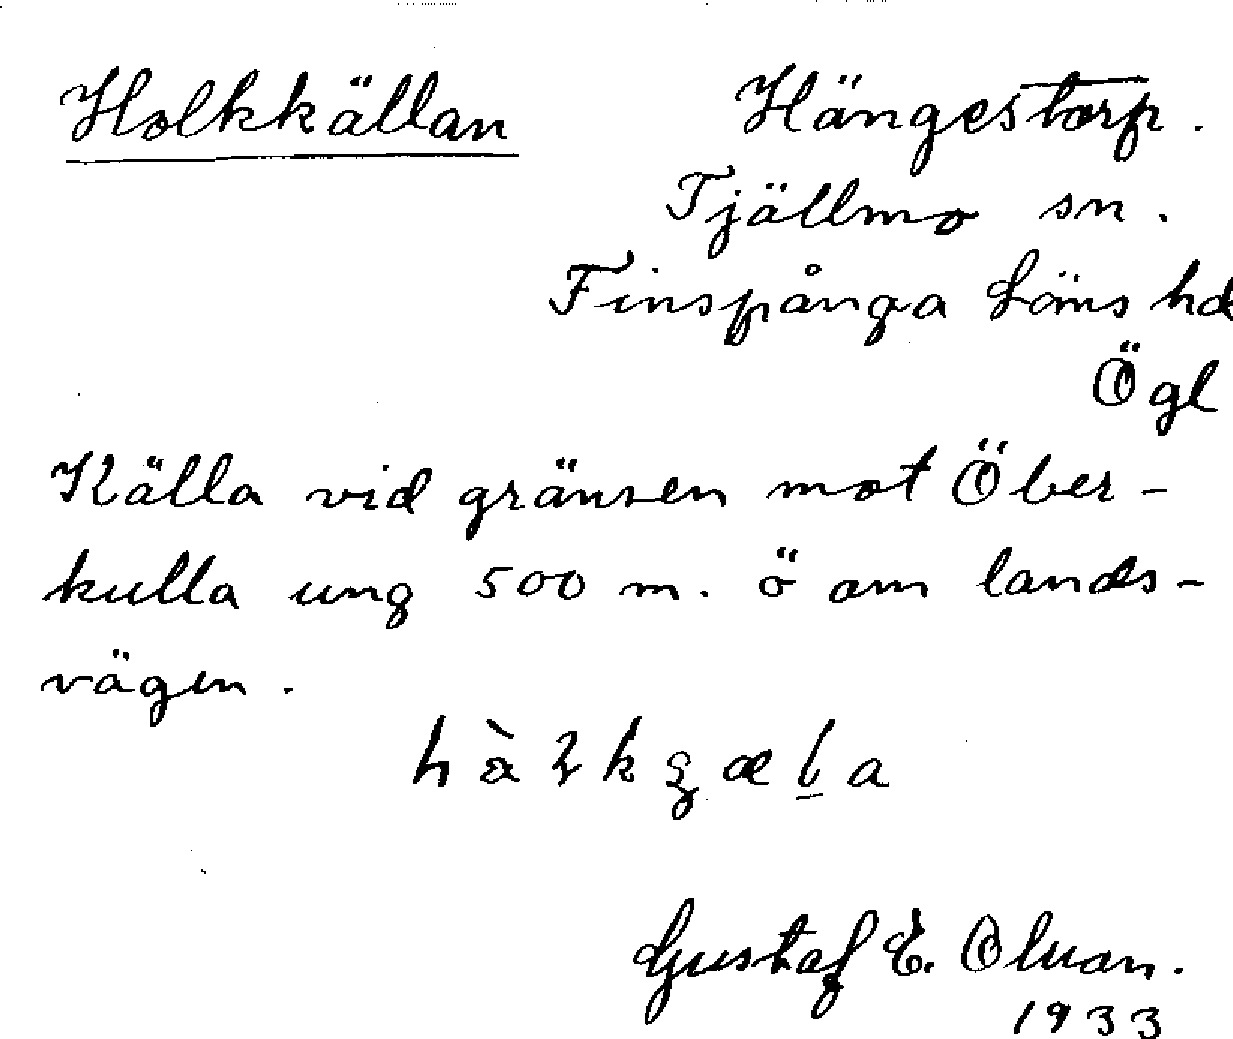 Holkkällan Hängestorp.
Tjällmo sn.
Finspånga Läns hd
Ögl
Källa vid gränsen mot Öber-
kulla ung 500 m. ö om lands-
vägen.
Gustaf E.
1933